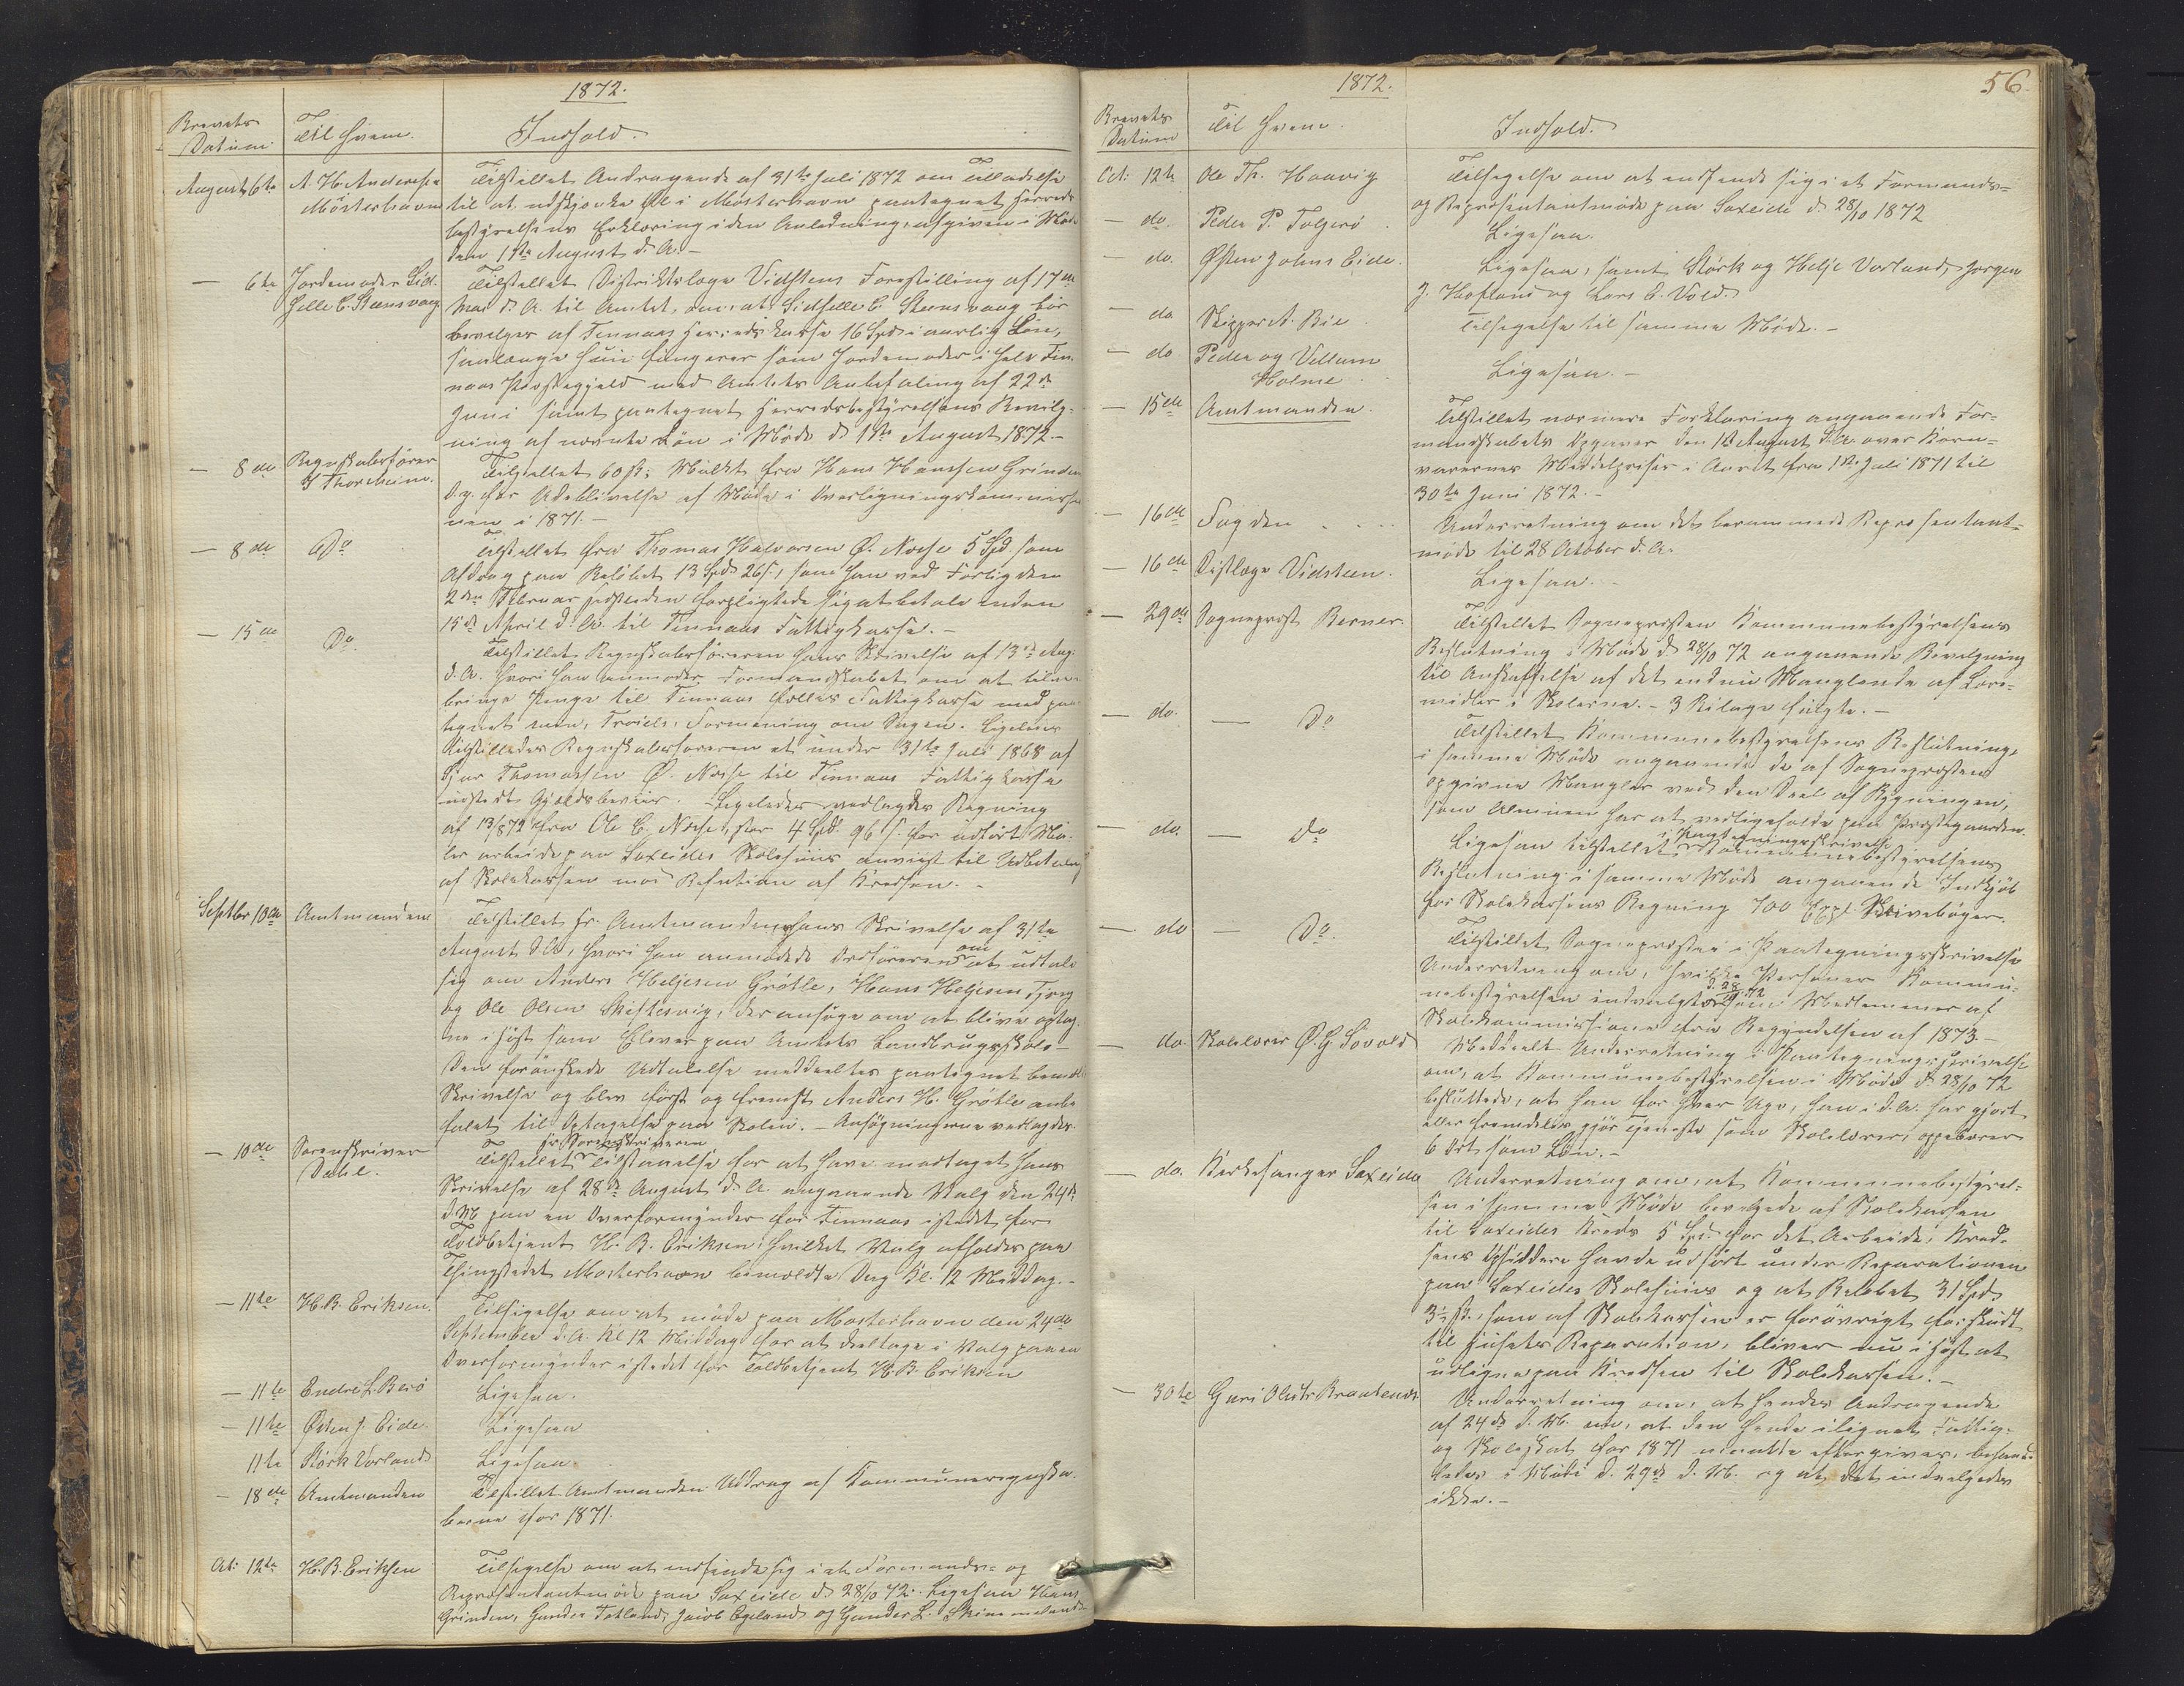 1872.
Brevets Datum. Til Hvem. Indhold.
August 6te A. H. Andersen Mosterhavn
Tilstillet Andragende af 31te Juli 1872 om Tilladelse
til at udskjænke Øl i Mosterhavn paategnet Herreds-
bestyrelsens Erklæring i den Anledning, afgiven i Møde
den 1ste August d. A. -
- 6te Jordemoder Sidselle C. Stensvaag
Tilstillet Distriktslæge Vidsteens Forestilling af 17de
Mai d. A. til Amtet, om, at Sidselle C. Stensvaag bør
bevilges af Finnaas Herredskasse 16 Spd i aarlig Løn,
saalænge hun fungerer som Jordemoder i hele Fin-
naas Præstegjeld med Amtets Anbefaling af 22de
Juni samt paategnet Herredsbestyrelsens Bevilg-
ning af nævnte Løn i Møde d. 1ste August 1872. -
- 8de Regnskabsfører Thorsheim.
Tilstillet 60 ß; Mulkt fra Hans Hansen Grinden
for Udeblivelse af Møde i Overligningskommissio-
nen i 1871. -
- 8de Do
Tilstillet fra Thomas Halvorsen Ø. Næsse 5 Spd som
Afdrag paa Beløbet 13 Spd 26 ß, som han ved Forlig den
2den Februar sidstleden forpligtede sig at betale inden
15de April d. A. til Finnaas Fattigkasse. -
- 15de Do.
Tilstillet Regnskabsføreren hans Skrivelse af 13de Aug.
d. A. hvori han anmoder Formandskabet om at tilve-
bringe Penge til Finnaas fælles Fattigkasse med paa-
tegnet Formening om Sagen. Ligeledes
tilstilledes Regnskabsføreren et under 31te Juli 1868 af
Thomassen Ø. Næsse til Finnaas Fattigkasse
udstedt Gjældsbeviis. - Ligeledes vedlagdes Regning
af 13/8 72 fra Ole C. Næsse, stor 4 Spd. 96 ß. for udført Ma-
ler arbeide paa Saxeides Skolehuus anviist til Udbetaling
af Skolekassen mod Refution af Kredsen. -
Septbr 10de Amtmanden
Tilstillet Hr. Amtmanden hans Skrivelse af 31te
August d. A., hvori han anmodede Ordføreren om at udtale
sig om Anders Heljesen Grøtle, Hans Heljesen
og Ole Olsen Skiftesvig, der ansøge om at blive optag-
ne i Høst som Elever paa Amtets Landbrugsskole -
Den forønskede Udtalelse meddeeltes paategnet bemeldte
Skrivelse og blev først og fremst Anders H. Grøtle anbe-
falet til Optagelse paa Skolen. - Ansøgningerne vedlagdes.
- 10de Sorenskriver Dahl.
Tilstillet Hr. Sorenskriveren Tilstaaelse for at have modtaget hans
Skrivelse af 28de August d. A. angaaende Valg den 24de
d. M. paa en Overformynder for Finnaas istedet for
Toldbetjent H. B. Eriksen, hvilket Valg afholdes paa
Thingstedet Mosterhavn bemeldte Dag Kl. 12 Middag. -
- 11te H. B. Eriksen.
Tilsigelse om at møde paa Mosterhavn den 24de
September d. A. Kl 12 Middag for at deeltage i Valg paa en
Overformynder istedet for Toldbetjent H. B. Eriksen
- 11te Endre L. Berø Ligesaa.
- 11te Østen J. Eide. Ligesaa
11te Størk Vorland Ligesaa.
- 18de Amtmanden
Tilstillet Amtmanden Uddrag af Kommuneregnska-
berne for 1871.
Oct: 12te H. B. Eriksen
Tilsigelse om at indfinde sig i et Formands- og
Repræsentantmøde paa Saxeide d. 28/10 72. Ligesaa Hans
Grinden, Gunder Totland, Jacob Egeland og Gunder L.
1872.
56.
Brevets Datum Til Hvem. Indhold.
Oct: 12te Ole Th. Haavig
Tilsigelse om at indfinde sig i et Formands-
og Repræsentantmøde paa Saxeide d. 28/10 1872
- do. Peder P. Folgerø Ligesaa.
- do. Østen Johns Eide.
Ligesaa, samt Størk og Helje Vorland, Jørgen
J. Høfland og Lars E. Vold.
- do Skipper A. Bie. Tilsigelse til samme Møde. -
- do Peder og Villum Holme. Ligesaa. -
- 15de Amtmanden.
Tilstillet nærmere Forklaring angaaende For-
mandskabets Opgaver den 1ste August d. A. over Korn-
varernes Middelpriser i Aaret fra 1ste Juli 1871 til
30te Juni 1872. -
- 16de Fogden . . . .
Underretning om det berammede Repræsentant-
møde til 28 Oktober d. A.
- 16de Distlæge Vidsteen. Ligesaa. -
- 29de Sogneprest Berner.
Tilstillet Sognepresten Kommunebestyrelsens
Beslutning i Møde d. 28/10 72 angaaende Bevilgning
til Anskaffelse af det endnu Manglende af Lære-
midler i Skolerne. - 3 Bilage fulgte. -
- do. - Do
Tilstillet Kommunebestyrelsens Beslutning
i samme Møde angaaende de af Sognepresten
opgivne Mangler ved den Deel af Bygningen,
som Almuen har at vedligeholde paa Prestegaarden.
- do. - Do
Ligesaa tilstillet i Paategningsskrivelse Kommunebestyrelsens
Beslutning i samme Møde angaaende Indkjøb
for Skolekassens Regning 100 Expl. Skrivebøger.
- do - Do.
Tilstillet Sognepresten i Paategningsskrivelse
Underretning om, hvilke Personer Kommu-
nebestyrelsen indvalgte d. 28/10 72 som Medlemmer af
Skolekommissionen fra Begyndelsen af 1873. -
- do. Skolelærer Ø. G. Løvold
Meddeelt Underretning i Paategningsskrivelse
om, at Kommunebestyrelsen i Møde d. 28/10 72
besluttede, at han for hver Uge, han i d. A. har gjort
eller fremdeles gjør Tjeneste som Skolelærer, oppebærer
6 Ort som Løn. -
- do. Kirkesanger Saxeide
Underretning om, at Kommunebestyrel-
sen i samme Møde bevilgede af Skolekassen
til Saxeides Kreds 5 Spd. for det Arbeide, Kred-
sens Opsiddere havde udført under Reparationen
paa Saxeides Skolehuus og at Beløbet 31 Spd
3 ß, som af Skolekassen er forøvrigt forskudt
til Husets Reparation, bliver nu i Høst at
udligne paa Kredsen til Skolekassen. -
- 30te Guri Olsdtr
Underretning om, at hendes Andragende
af 24de d. M. om, at den hende ilignet Fattig-
og Skoleskat for 1871 maatte eftergives, behand-
ledes i Møde d. 29de d. M. og at det indvilgedes
ikke. -